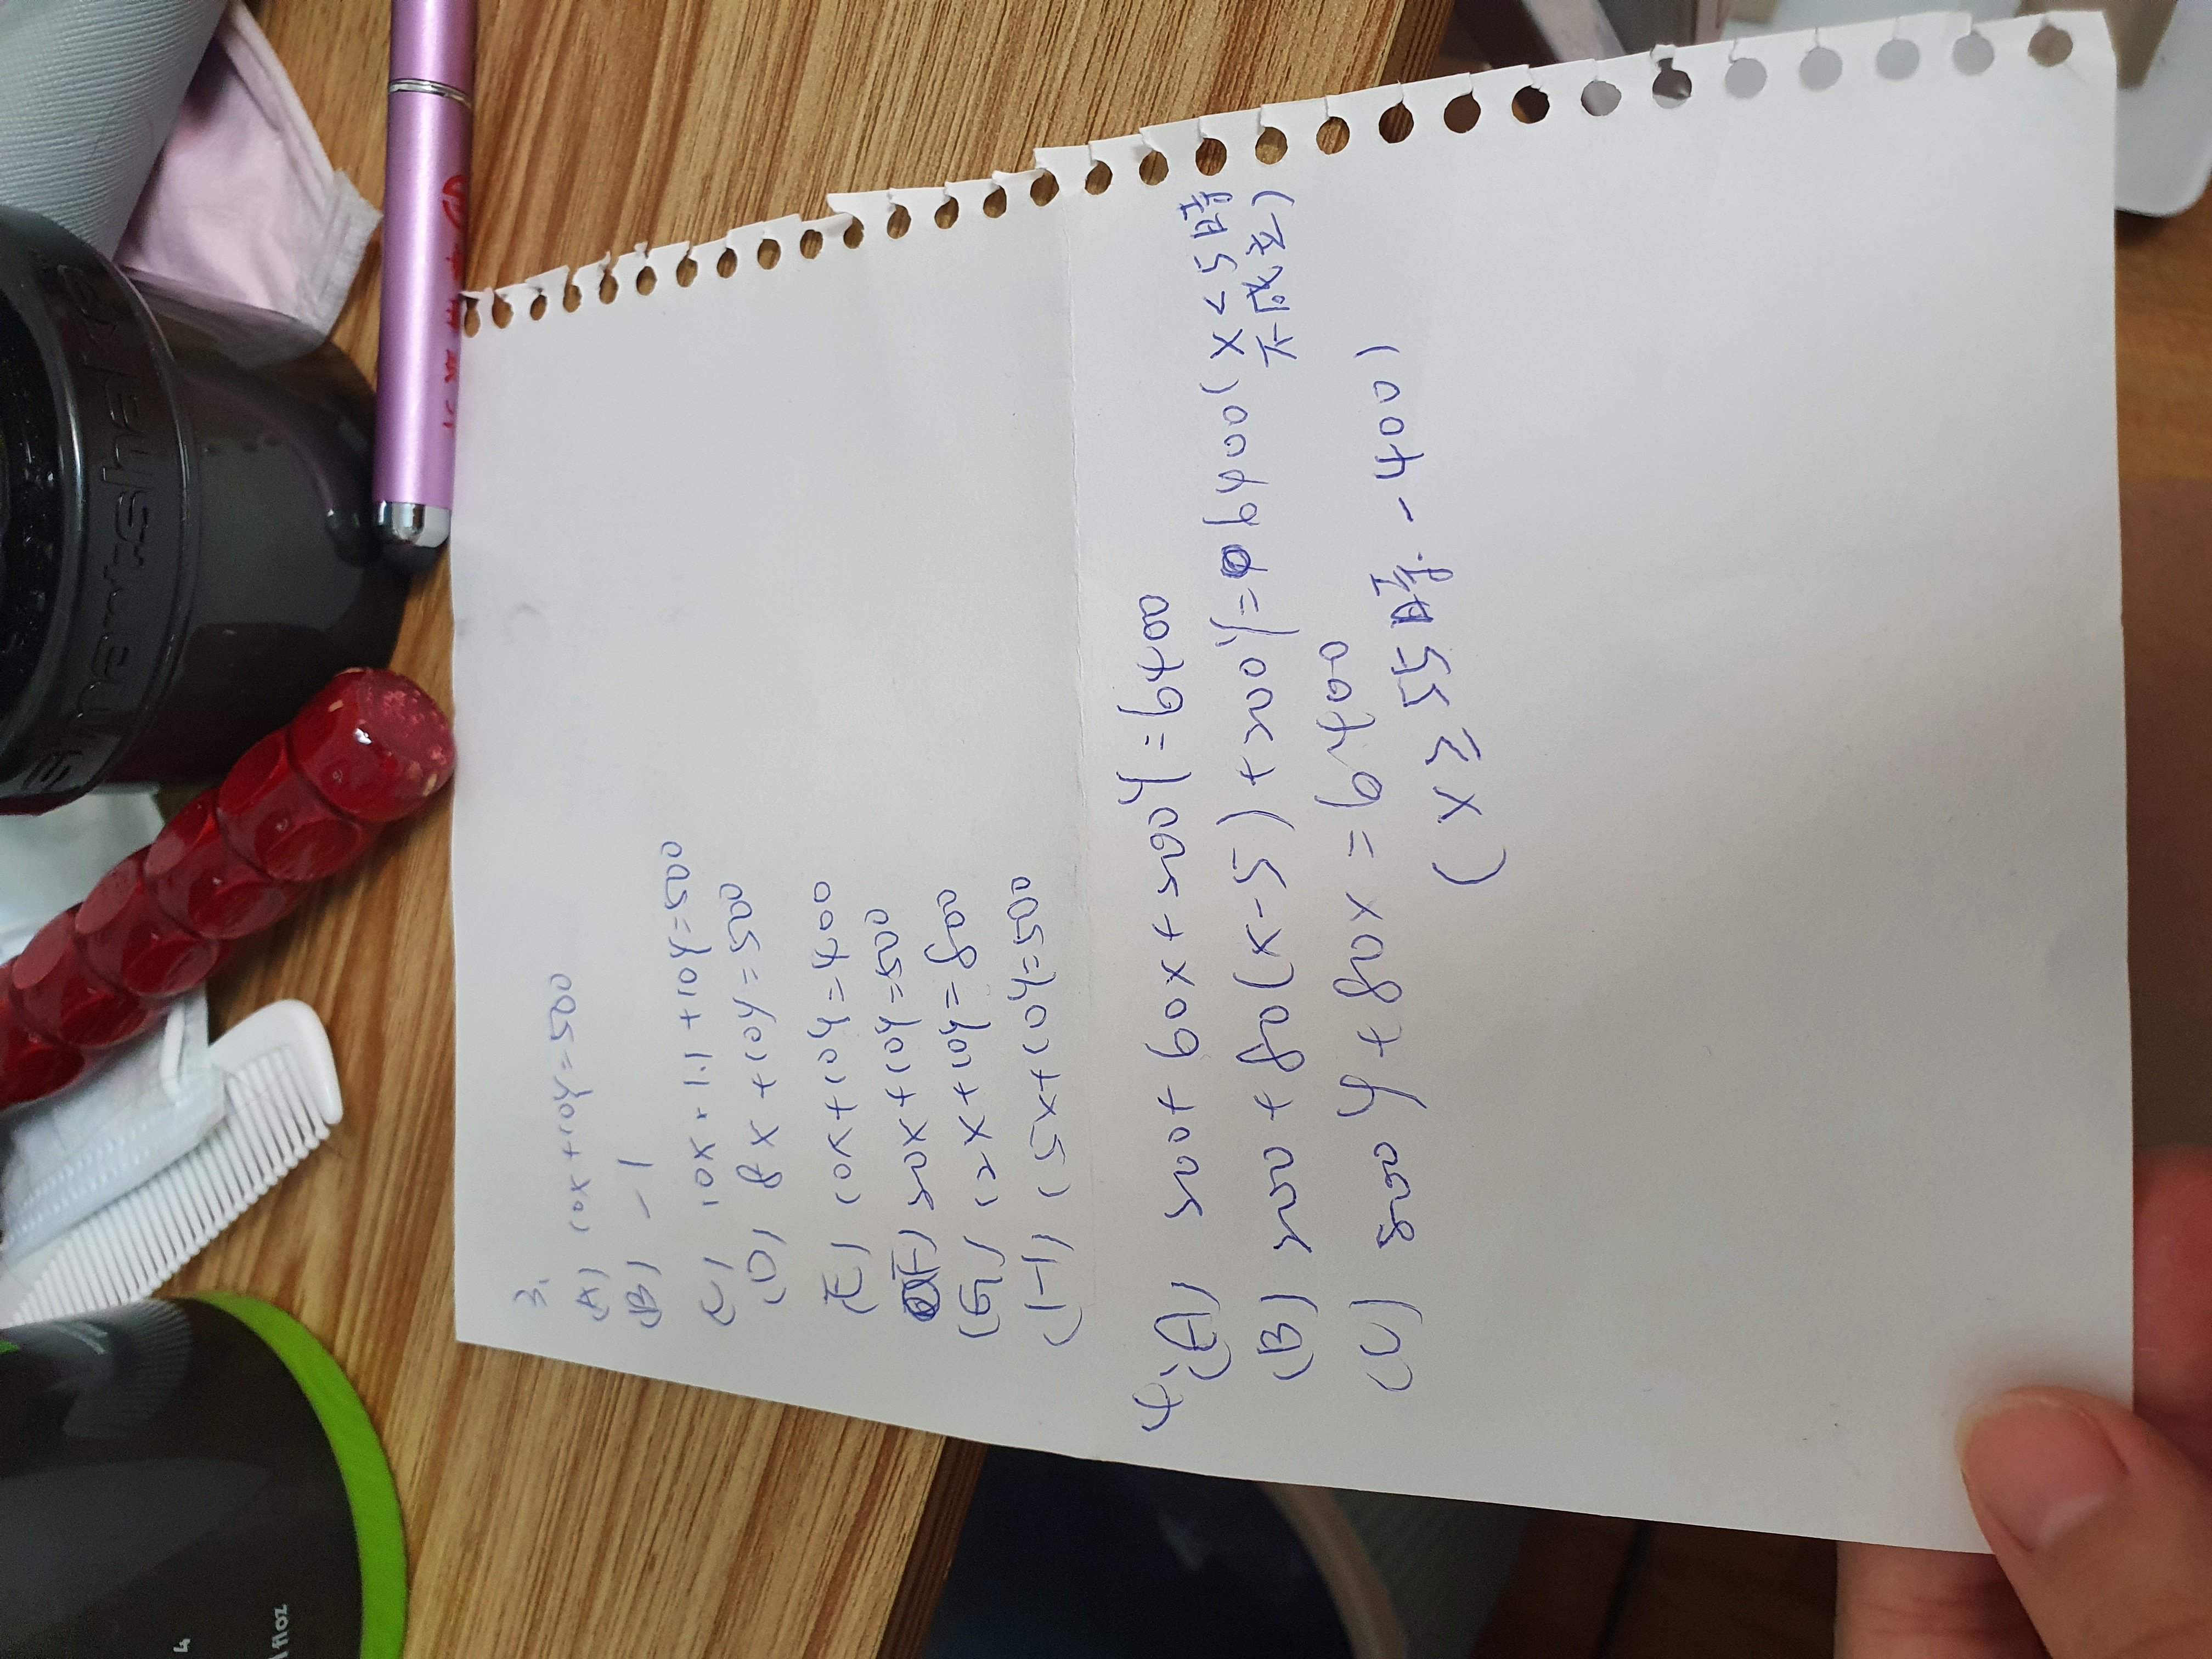 4
floz
smartshake
3.
(A) 10x+10y=500
(B) -1
(C) 10x·1.1+10y=500
(D) 8x+10y=500
(E) 10x+10y=400
(F) 20x+10y=500
(G) 12x+10y=800
(H) 15x+10y=500
4.(A) 200+60x+200y=6400
(B) 200+80(x-5)+200y=6400(x<5時
不成立)
(C) 200y+80x=6400
(x≥55時-400)